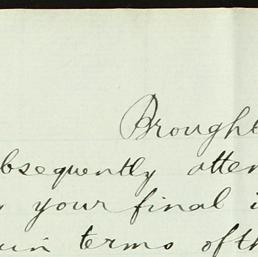 Brought
bsequently atten
your final i
in terms of th